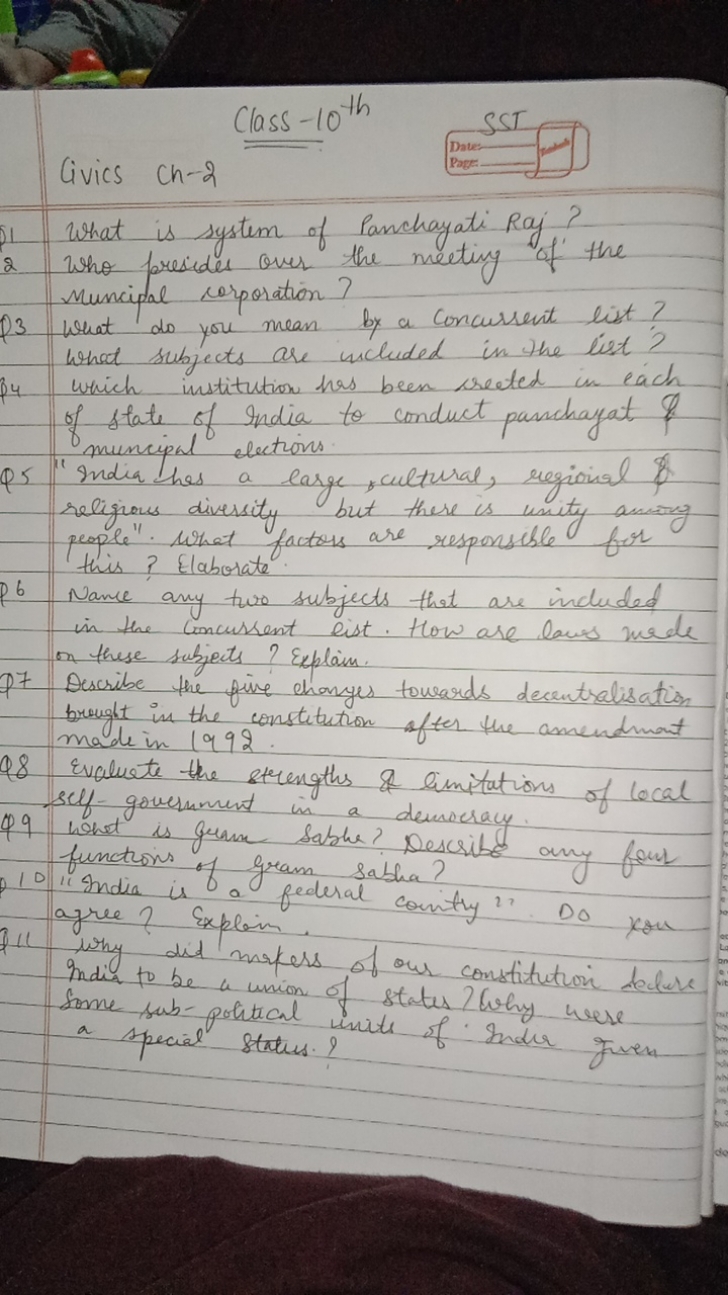 Class-10th
SST
Date:
Page:
Civics Ch-2
Q1 What is system of Panchayati Raj ?
2 Who presides over the meeting of the
Muncipal corporation ?
Q3 What do you mean by a Concurrent list ?
What subjects are included in the list ?
Q4 which institution has been created in each
of state of India to conduct panchayat &
muncipal elections.
Q5 "India has a large, cultural, regional &
religious diversity but there is unity among
people". What factors are responsible for
this ? Elaborate.
Q6 Name any two subjects that are included
in the Concurrent list. How are laws made
on these subjects ? Explain.
Q7 Describe the five changes towards decentralisation
brought in the constitution after the amendment
made in 1992.
Q8 Evaluate the strengths & limitations of local
self-government in a democracy.
Q9 What is gram Sabha? Describe any four
functions of gram Sabha ?
10 "India is a federal country". Do you
agree ? Explain.
Q11 Why did makers of our constitution declare
India to be a union of states ? Why were
some sub-political units of India given
a special status. ?